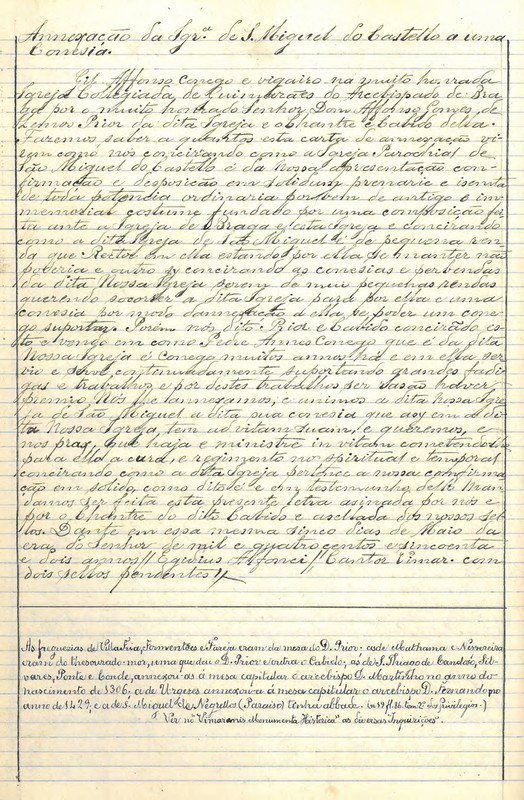 Annexação da Igr.ª de S. Miguel do Castello a uma
Conesia.
Gil Affonso Conego e vigairo na muito honrada
Igreja Collegiada de Guimarães do Arcebispado de Bra-
ga por o muito honrado Senhor Dom Affonso Gomes de
Lemos Prior da dita Igreja e o Chantre e Cabido della
Fazemos saber a quantos esta carta de annexação vi-
rem como nós concirando como a Igreja Parochial de
São Miguel do Castello é da nossa apresentação con-
firmação e desposição em solidum prenarie e isenta
de toda potencia ordinaria por bem de antigo e im-
memorial costume fundado por uma composição fei-
ta ante a Igreja de Braga e esta Igreja e concirando
como a dita Igreja de São Miguel é de pequena ren-
da que Reitor em ella estando por ella se manter não
poderia e outro sy concirando as conesias e perbendas
da dita Nossa Igreja serem de mui pequenas rendas
querendo socorrer a dita Igreja para por ella e uma
conesia por modo dannexação a ella se poder um cone-
go suportar. Porém nós dito Prior e Cabido concirãdo es-
to e vendo em como Pedre Annes Conego que é da dita
Nossa Igreja é Conego muitos annos há e em ella ser-
viu e serve continuadamente suportando grandes fadi-
gas e trabalhos e por destes trabalhos ser rasão haver
premio. Nós lhe annexamos, e unimos a dita nossa Igre-
ja de São Miguel a dita sua conesia que asy em a di-
ta Nossa Igreja tem ad vitam suam, e queremos, e
nos praz, que haja e ministre in vitam cometendolhe
para ello a cura, e regimento no spiritual e temporal
concirando como a dita Igreja pertence a nossa confirma-
ção em solido como dito é e em testemunho deste man-
damos ser feita esta presente letra asinada por nós e
por o Chantre do dito Cabido e asellada dos nossos sel-
los. Dante em essa mesma sinco dias de Maio da
era do Senhor de mil e quatrocentos e sincoenta
e dois annos // Egidius Alfonci // Cantor Vimar. com
dois sellos pendentes //
As freguezias de Villa Fria, Formentões e Fareja eram da mesa do D. Prior; as de Mathama e Nespereira
eram do thesoureiro-mor, uma que deu o D. Prior e outra o Cabido; as de S. Thiago de Candoso, Sil-
vares, Ponte e Conde, annexou-as á mesa capitular o arcebispo D. Martinho no anno do
nascimento de 1306, a de Urgeses annexou-a á mesa capitular o arcebispo D. Fernando no
anno de 1429, e a de S. Miguel de Negrellos (Paraiso) tinha abbade.
Ver no "Vimaranis Monumenta Historica" as diversas "Inquirições".